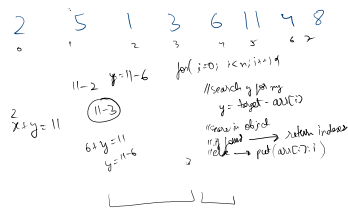 2 5 1 3 6 11 4 8
0 1 2 3 4 5 6 7
11-2 y=11-6
for( i=0; i<n; i++){
//search y for my
y = target - arr[i]
11-3
2
x+y=11
//search in object
6+y=11
y=11-6
//if found → return indexes
//else → put(arr[i], i)
3